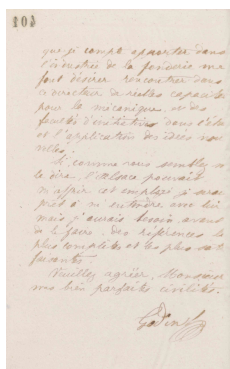 104
que je compte apporter dans
l'industrie de la fonderie me
font désirer rencontrer dans
ce directeur de réelles capacités
pour la mécanique et des
facultés d'initiation dans l'étude
et l'application des idées nou
velles.
Si, comme vous semblez
le dire, l'alsace pouvait
m'offrir cet employé, je serais
prêt à m'entendre avec lui
mais j'aurais besoin, avant
de le faire, des références les
plus complètes et les plus satis
faisantes.
Veuillez agréer, Monsieur
mes bien parfaites civilités.
Godin